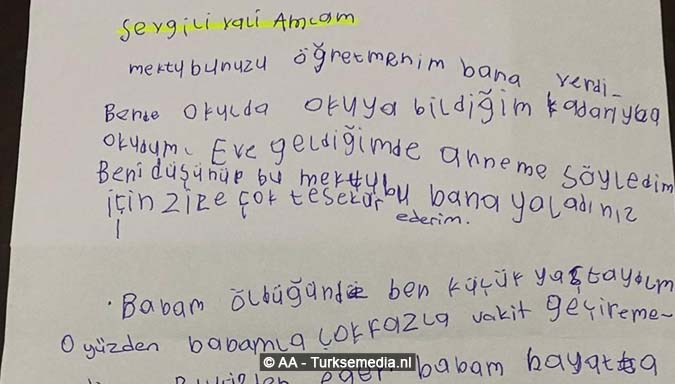 Sevgili vali Amcam
mektubunuzu öğretmenim bana verdi-
Bende okulda okuya bildiğim kadarıyla
okudum. Eve geldiğimde anneme söyledim
Beni düşünüp bu mektubu bana yoladınız
için zize çok teşekür ederim.
· Babam öldüğünde ben küçük yaştaydım
O yüzden babamla çokfazla vakit geçireme-
eğer babam hayatta
© AA - Turksemedia.nl